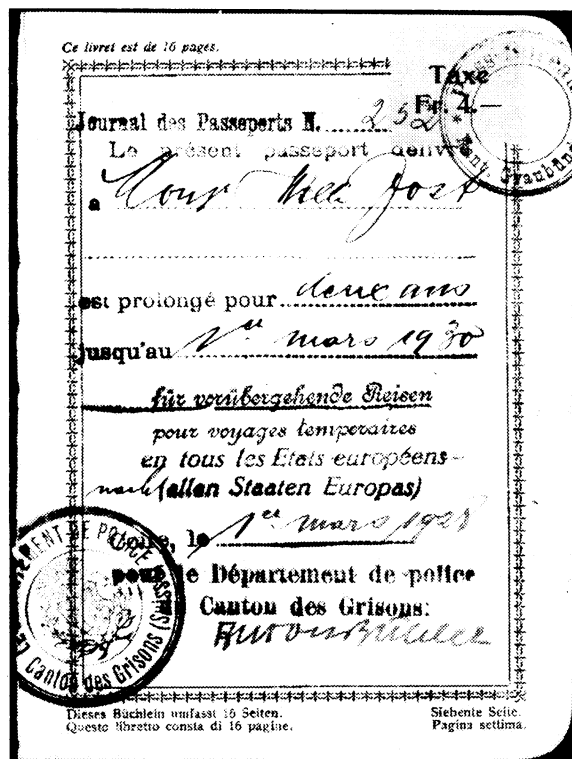 Ce livret est de 16 pages.
Taxe
Fr. 4.—
Journal des Passeports N. 252
Le présent passeport délivré
a Jost
est prolongé pour deux ans
jusqu'au 1er mars 1930
für vorübergehende Reisen
pour voyages temporaires
en tous les Etats européens
nach (allen Staaten Europas)
Coire, le 1er mars 1928
pour le Département de police
Canton des Grisons:
DEPARTEMENT DE POLICE
Canton des Grisons (SUISSE)
Kant. Graubünd
Dieses Büchlein umfasst 16 Seiten.
Questo libretto consta di 16 pagine.
Siebente Seite.
Pagina settima.